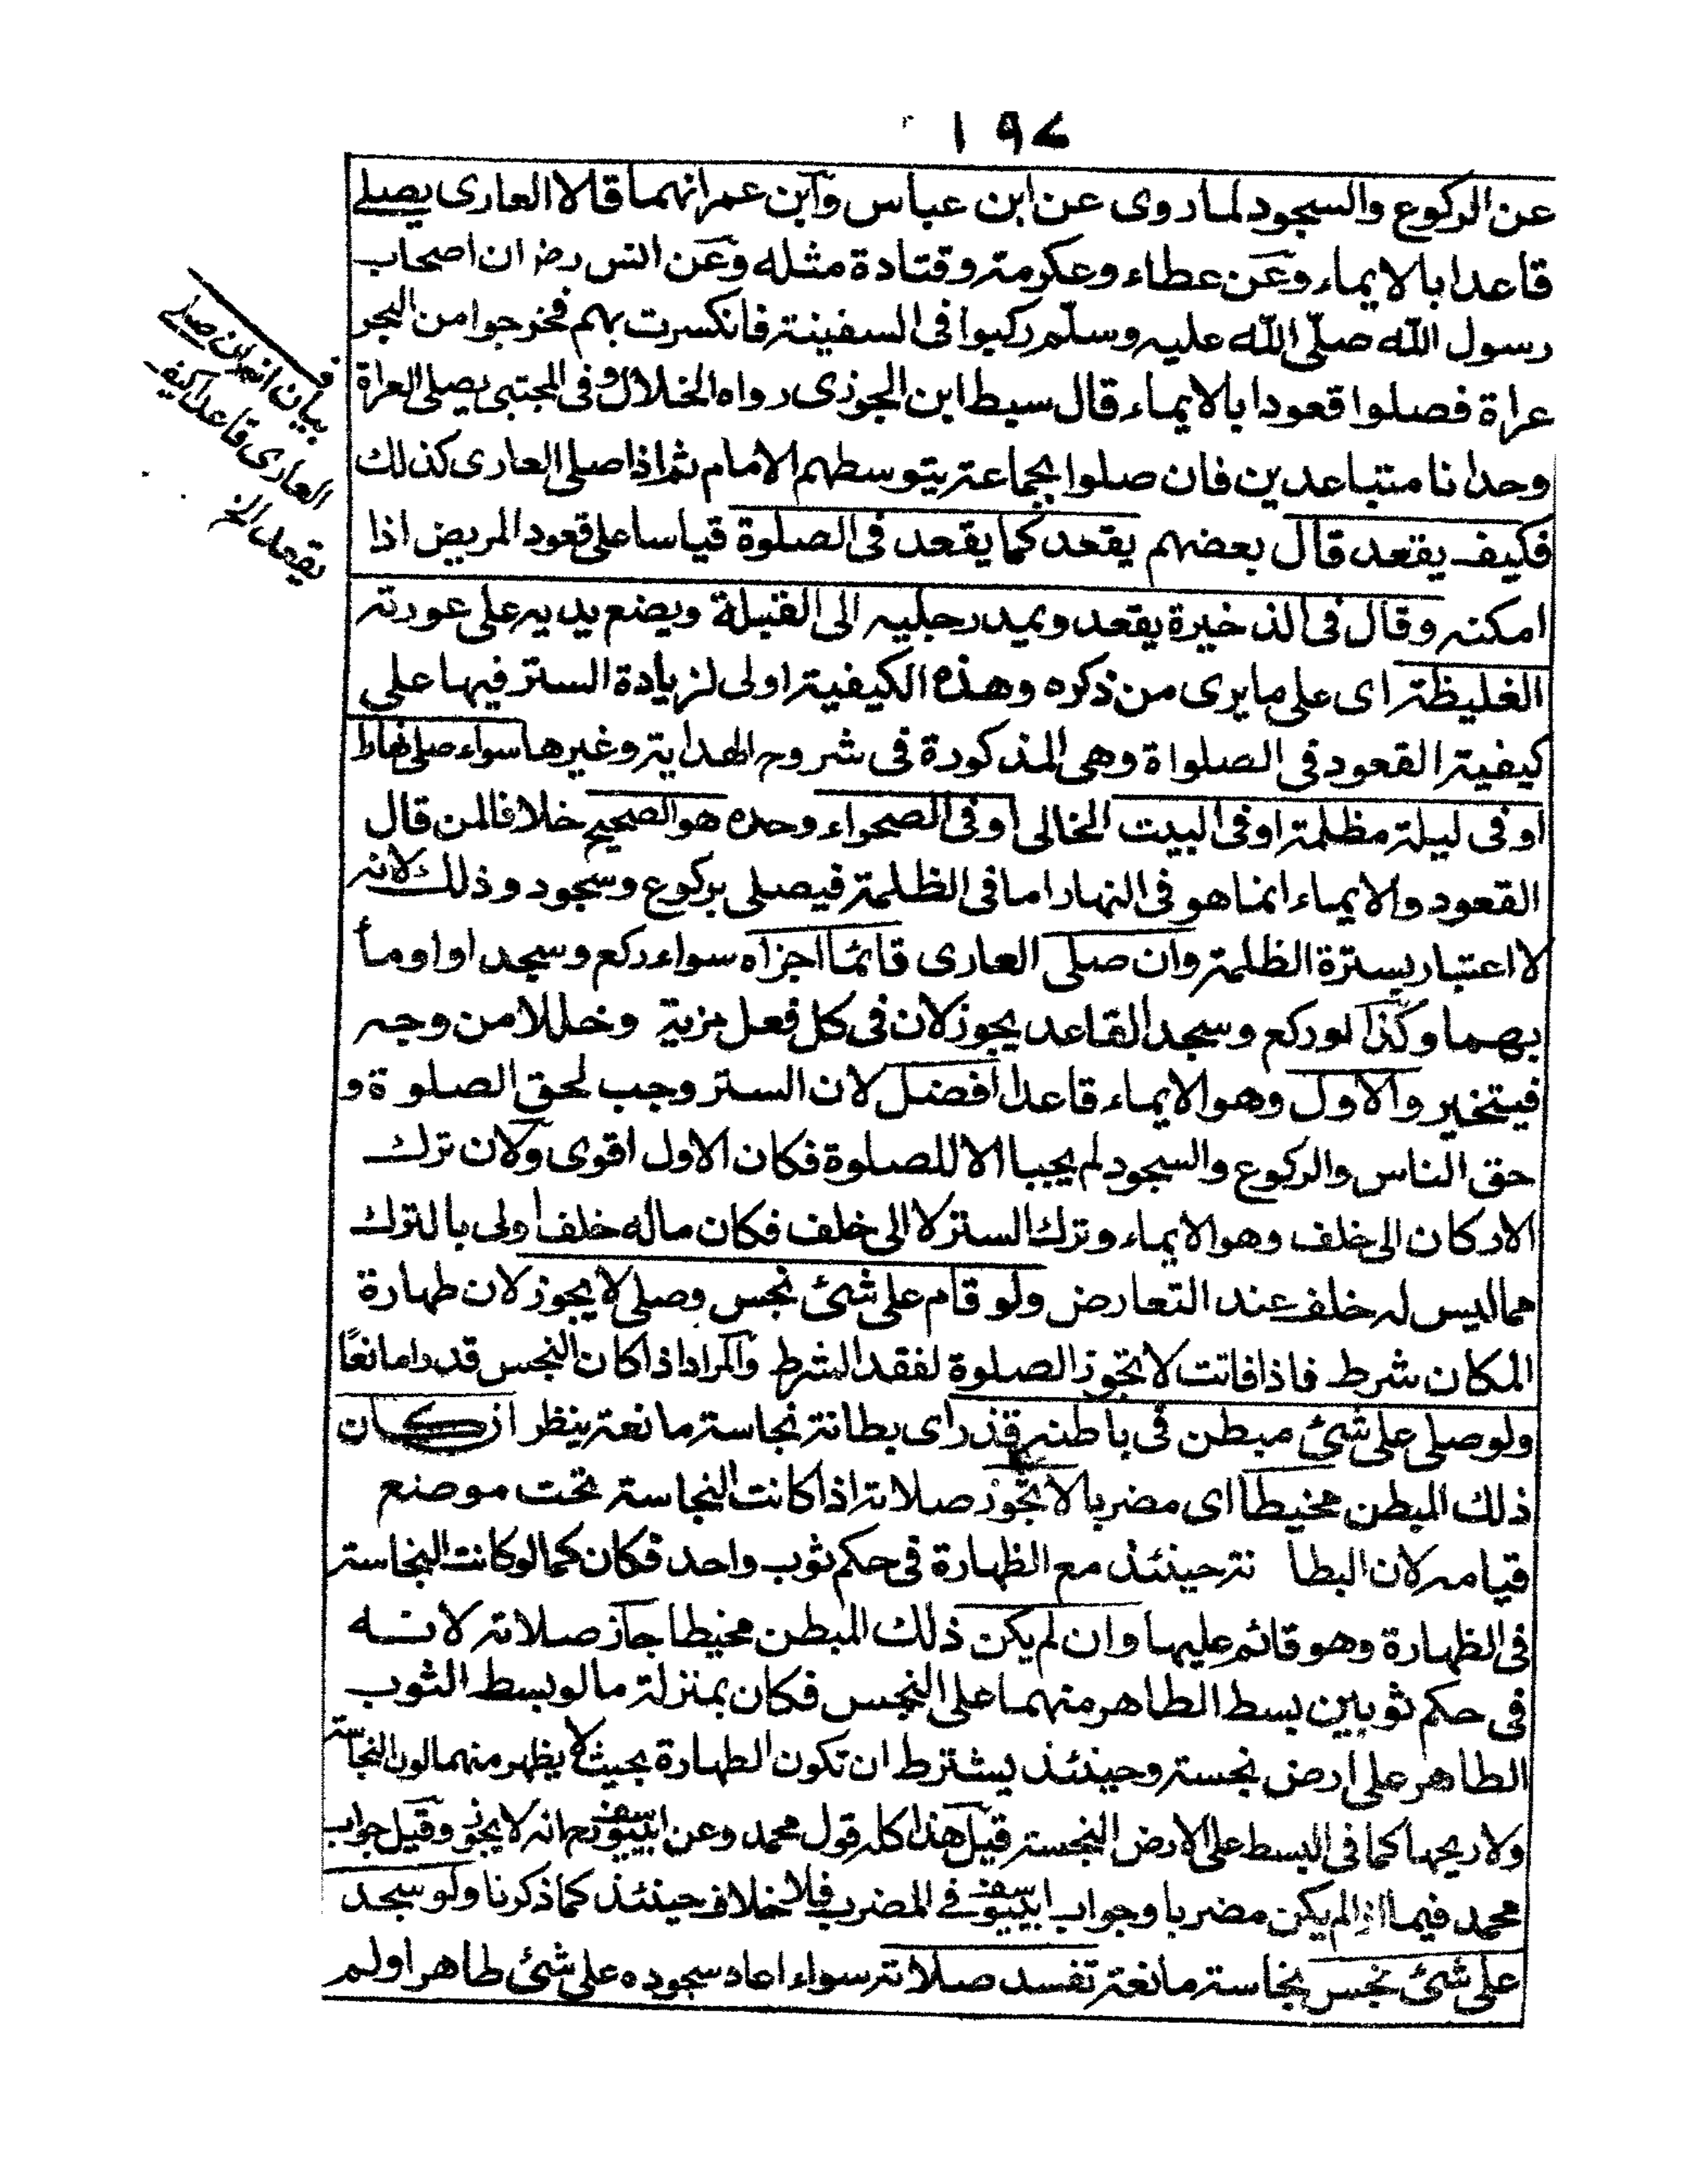 ١٩٧
عن الركوع والسجود لما روى عن ابن عباس وابن عمر انهما قالا العارى يصلى
قاعدا بالايماء وعن عطاء وعكرمة وقتادة مثله وعن انس رضـ ان اصحاب
رسول الله صلّى الله عليه وسلّم ركبوا فى السفينة فانكسرت بهم فخرجوا من البحر
عراة فصلوا قعودا بالايماء قال سبط ابن الجوزى رواه الخلال وفى المجتبى يصلى العراة
وحدانا متباعدين فان صلوا بجماعة يتوسطهم الامام ثم اذا صلى العارى كذلك
فكيف يقعد قال بعضهم يقعد كما يقعد فى الصلوة قياسا على قعود المريض اذا
امكنه وقال فى الذخيرة يقعد ويمد رجليه الى القبلة ويضع يديه على عورته
الغليظة اى على ما يرى من ذكره وهذه الكيفية اولى لزيادة الستر فيها على
كيفية القعود فى الصلواة وهى المذكورة فى شروح الهداية وغيرها سواء صلى نهارا
او فى ليلة مظلمة او فى البيت الخالى او فى الصحراء وحده هو الصحيح خلافا لمن قال
القعود والايماء انما هو فى النهار اما فى الظلمة فيصلى بركوع وسجود وذلك لانه
لا اعتبار بسترة الظلمة وان صلى العارى قائما اجزاه سواء ركع وسجد او اومأ
بهما وكذا لو ركع وسجد القاعد يجوز لان فى كل فعل مزية وخللا من وجه
فيتخير والاول وهو الايماء قاعدا افضل لان الستر وجب لحق الصلوة و
حق الناس والركوع والسجود لم يجبا الا للصلوة فكان الاول اقوى ولان ترك
الاركان الى خلف وهو الايماء وترك الستر لا الى خلف فكان ماله خلف اولى بالترك
مماليس له خلف عند التعارض ولو قام على شئ نجس وصلى لا يجوز لان طهارة
المكان شرط فاذا فاتت لا تجوز الصلوة لفقد الشرط والمراد اذا كان النجس قدرا مانعًا
ولو صلى على شئ مبطن فى باطنه قذر اى بطانة نجاسة مانعة ينظر ان كان
ذلك المبطن مخيطا اى مضربا لا تجوز صلاته اذا كانت النجاسة تحت موضع
قيامه لان البطا نة حينئذ مع الظهارة فى حكم ثوب واحد فكان كما لو كانت النجاسة
فى الظهارة وهو قائم عليها وان لم يكن ذلك المبطن مخيطا جاز صلاته لانه
فى حكم ثوبين بسط الطاهر منهما على النجس فكان بمنزلة مالو بسط الثوب
الطاهر على ارض نجسة وحينئذ يشترط ان تكون الطهارة بحيث لا يظهر منهما لون النجاسة
ولا ريحها كما فى البسط على الارض النجسة قيل هذا كله قول محمد وعن ابيوسف رح انه لا يجوز وقيل جواب
محمد فيما اذا لم يكن مضربا وجواب ابيوسف فى المضرب فلا خلاف حينئذ كما ذكرنا ولو سجد
على شئ نجس بنجاسة مانعة تفسد صلاته سواء اعاد سجوده على شئ طاهر اولم
بيان انه ان صلى
العارى قاعدا كيف
يقعد الخ